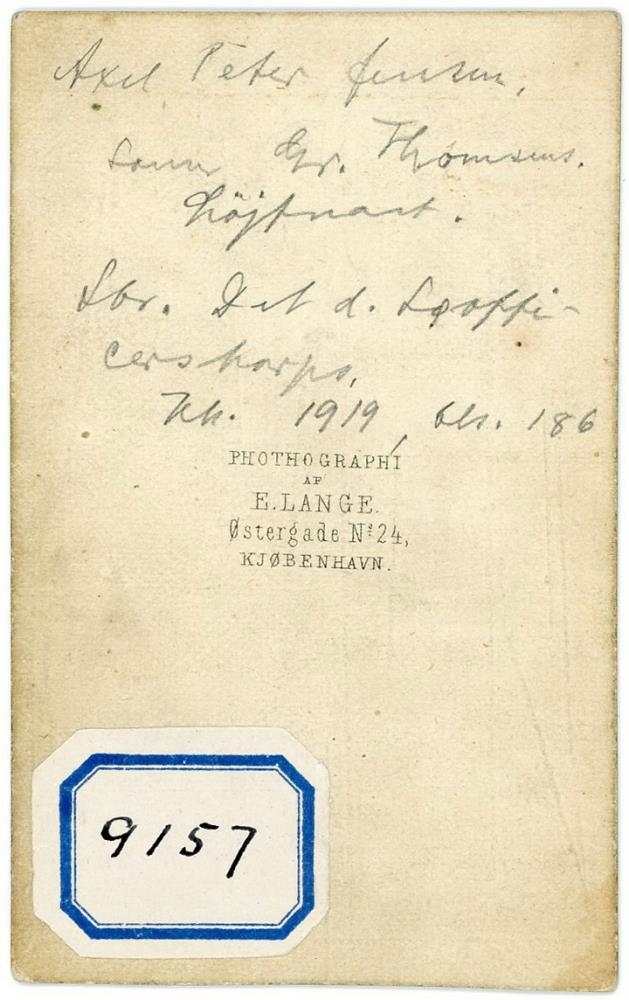 Axel Peter Jensen,
Gr. Thomsens.
Löjtnant.
Sbr. Det d. Søoffi-
cerskorps,
Kh. 1919, bls. 186
PHOTHOGRAPHI
AF
E. LANGE.
Østergade Nº 24,
KJØBENHAVN.
9157